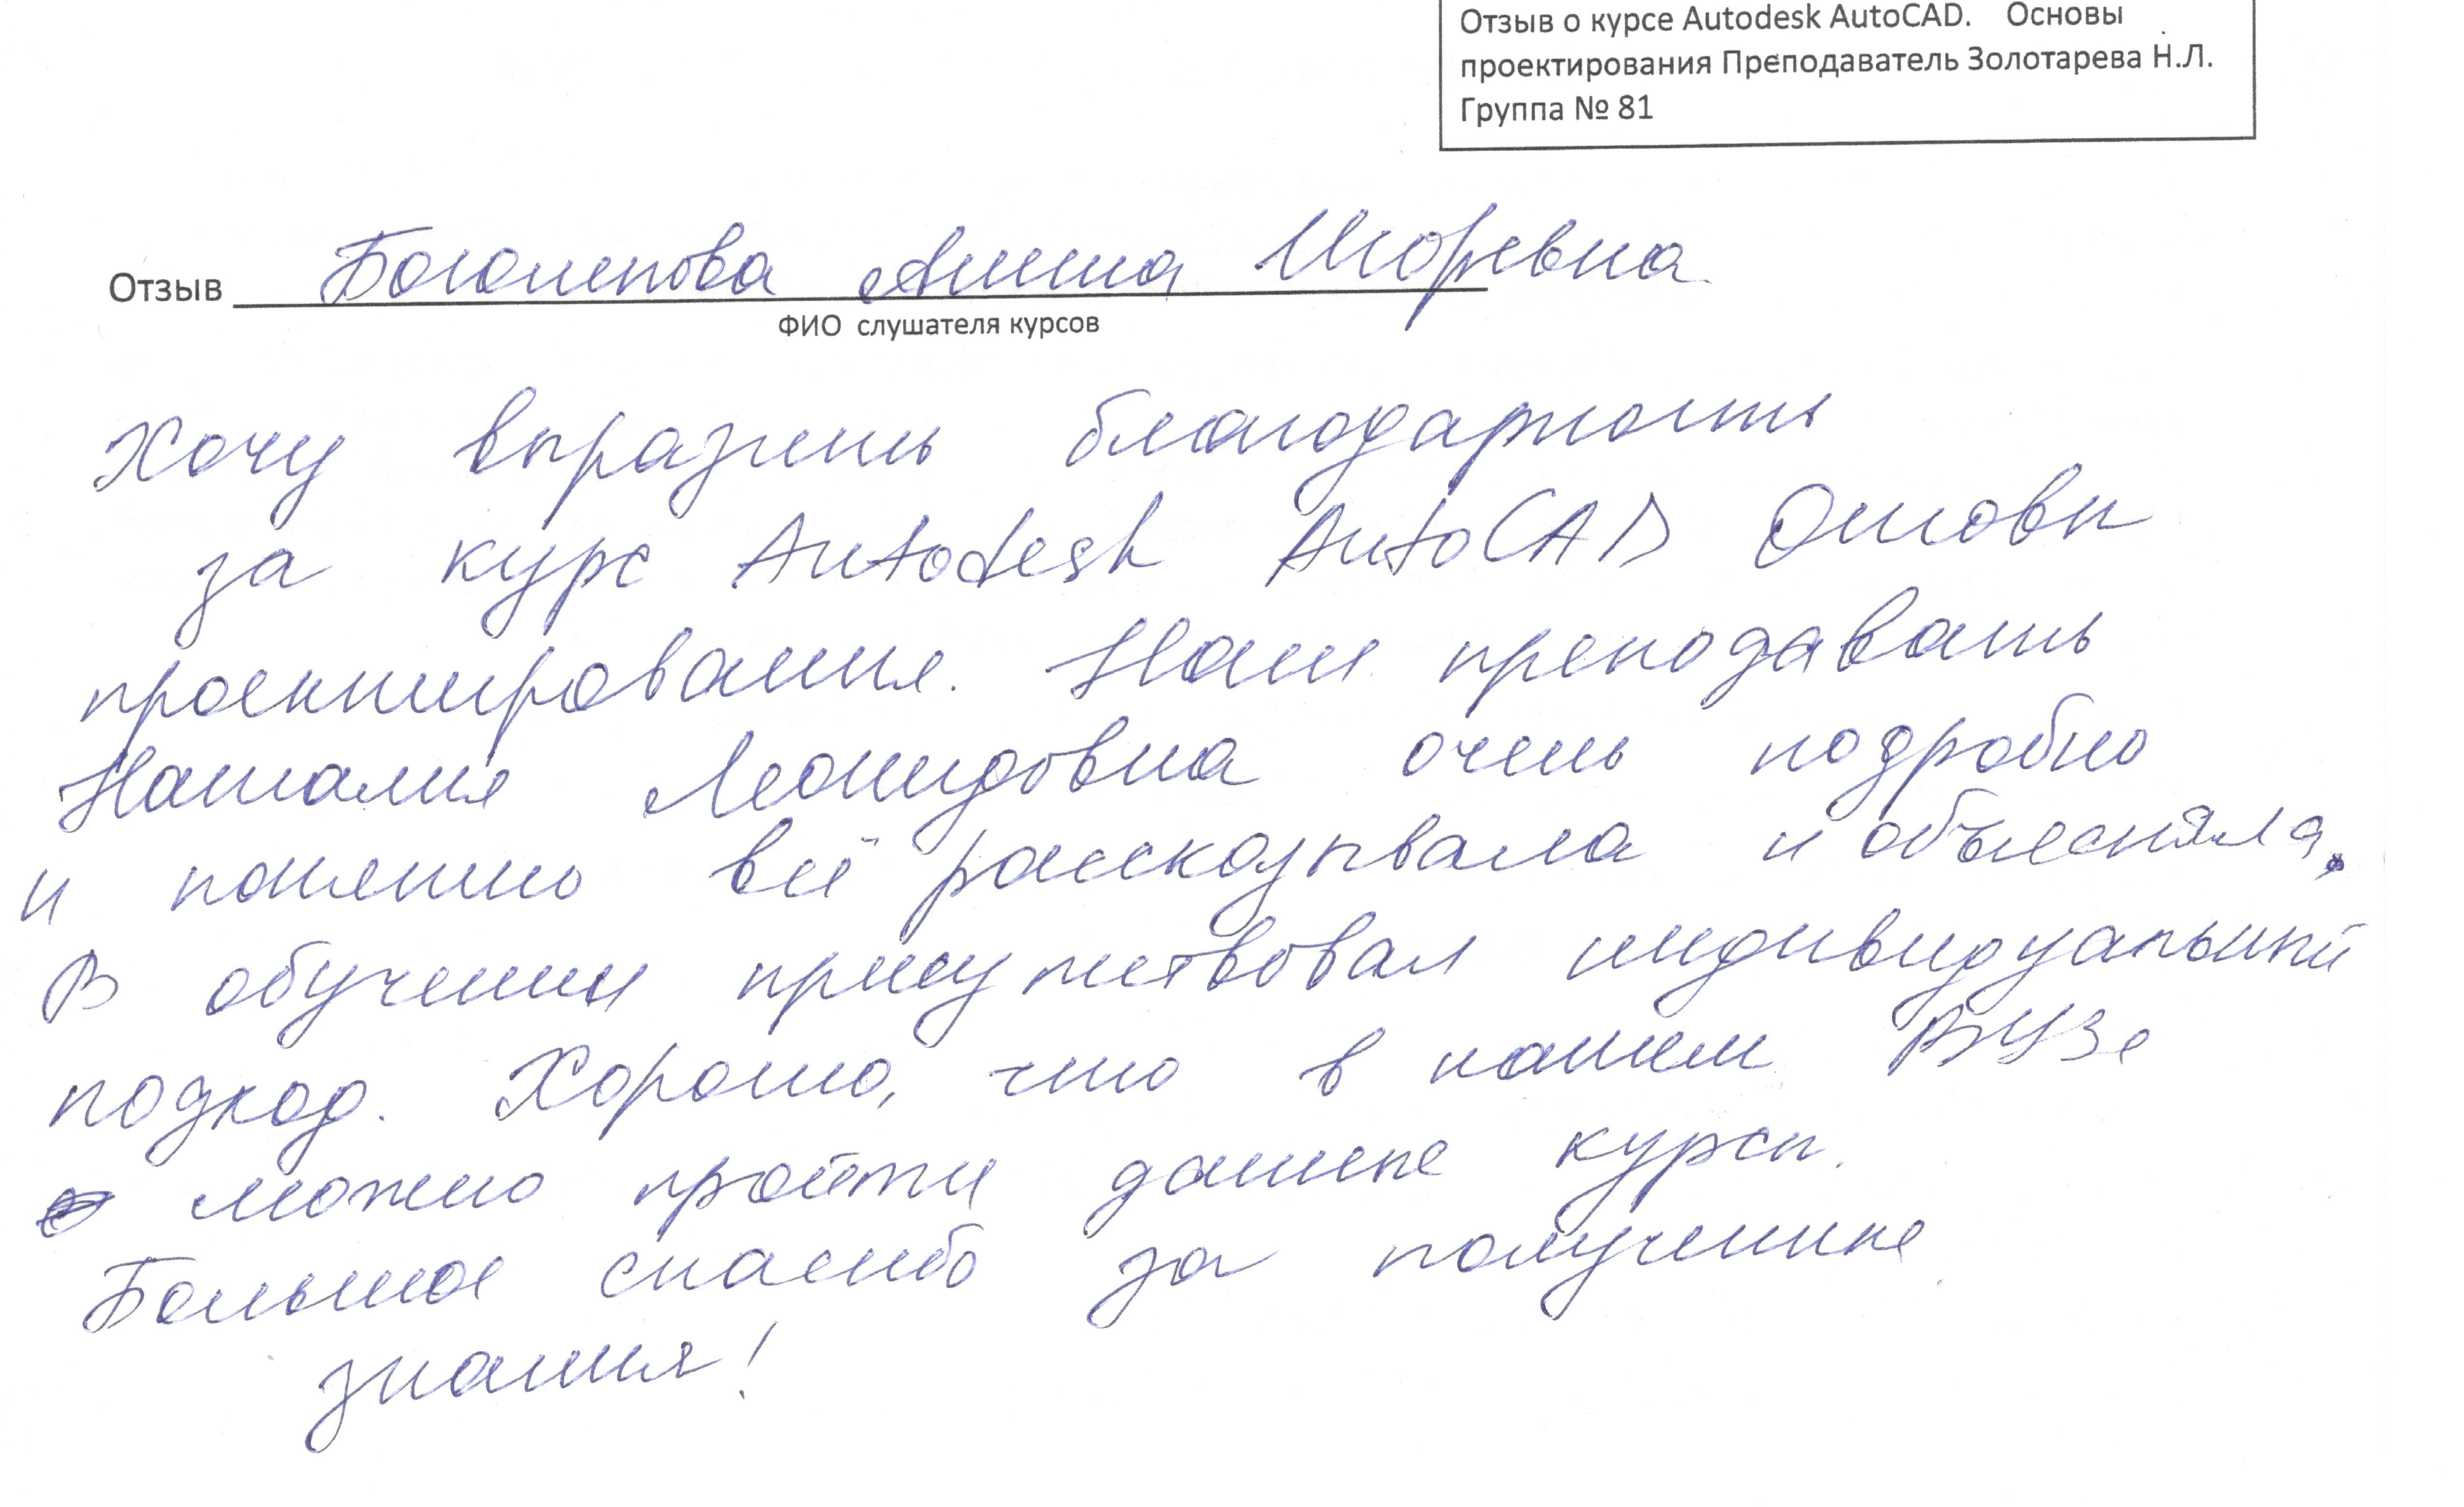 Отзыв о курсе Autodesk AutoCAD. Основы
проектирования Преподаватель Золотарева Н.Л.
Группа № 81
Отзыв Боголепова Анна Игоревна
ФИО слушателя курсов
Хочу выразить благодарность
за курс Autodesk AutoCAD Основы
проектирования. Наш преподаватель
Наталия Леонидовна очень подробно
и понятно всё рассказывала и объясняла.
В обучении присутствовал индивидуальный
подход. Хорошо, что в нашем ВУЗе
можно пройти данные курсы.
Большое спасибо за полученные
знания!